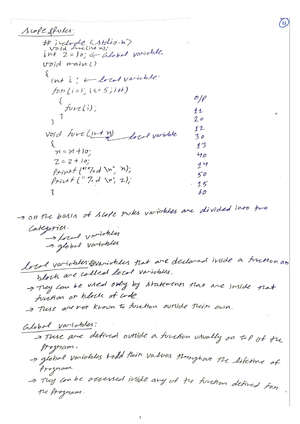 Scope Rules:
# include <stdio.h>
void func(int n);
int z=10; ← Global variable
void main()
{
int i; ← local variable
for(i=1; i<=5; i++)
{
func(i);
}
}
void func(int n) local variable
{
n = n+10;
z = z+10;
printf("%d \n", n);
printf("%d \n", z);
}
O/P
11
20
12
30
13
40
14
50
15
60
→ On the basis of scope rules variables are divided into two
categories.
→ local variables
→ global variables
local variables: variables that are declared inside a function or
block are called local variables.
→ They can be used only by statements that are inside that
function or block of code
→ These are not known to function outside their own.
Global variables:
→ These are defined outside a function usually on top of the
Program.
→ global variables hold their values throughout the lifetime of
Program
→ They can be accessed inside any of the function defined for
the Program.
1